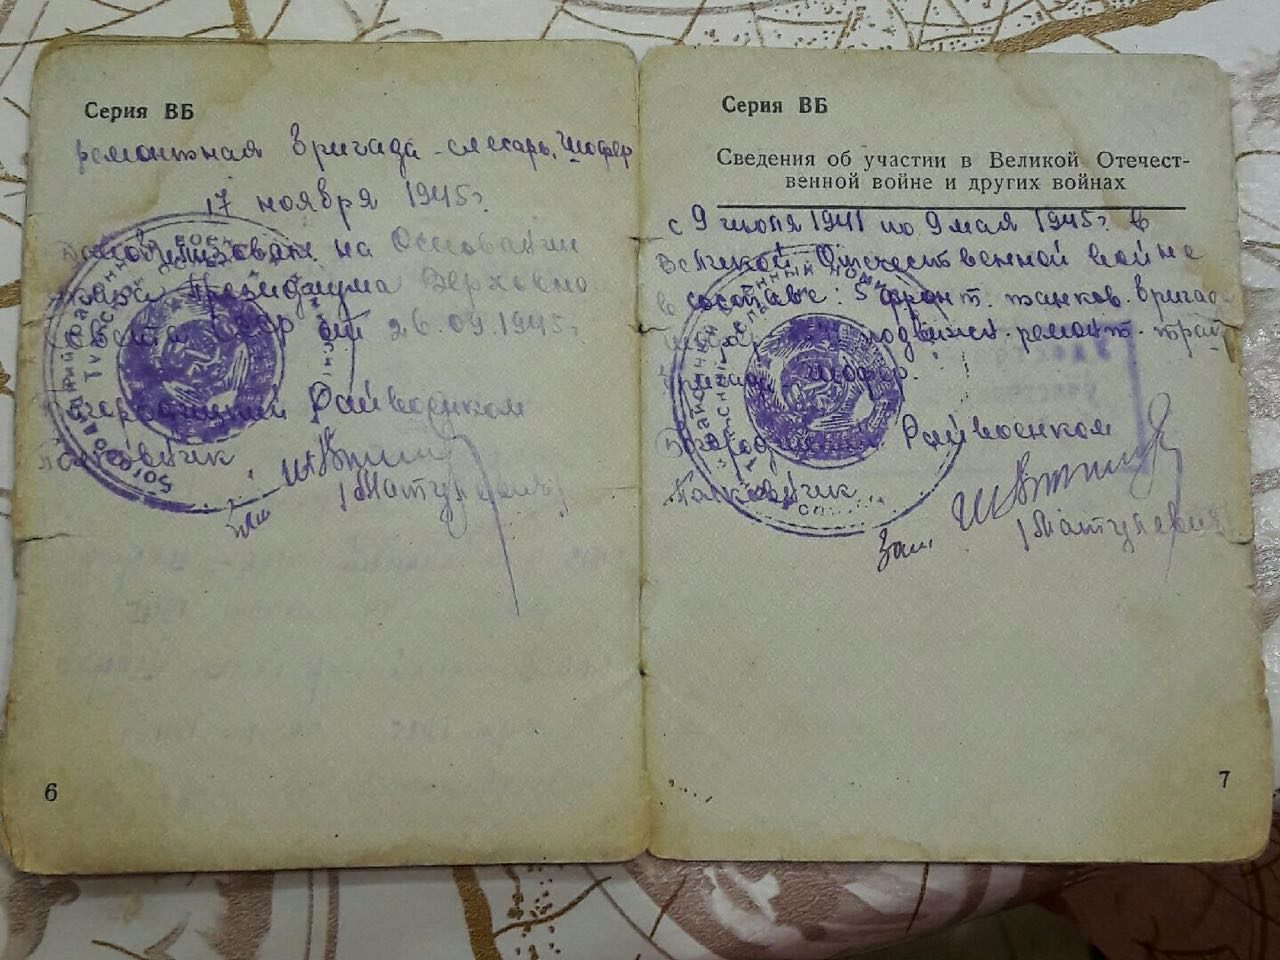 Серия ВБ
ремонтная бригада - слесарь, шофер
17 ноября 1945г.
Демобилизован на Основании
Указа Президиума Верховно
Совета СССР от 26.09.1945г.
Богородицкий Райвоенком
Полковник
/Матулевич/
6
Серия ВБ
Сведения об участии в Великой Отечест-
венной войне и других войнах
с 9 июля 1941 по 9 мая 1945г. в
Великой Отечественной войне
в составе: 5 фронт. танков. бригада
подвижн. ремонт.
бригада шофер.
Богородицкий Райвоенком
Полковник
Зам.
/Матулевич
7